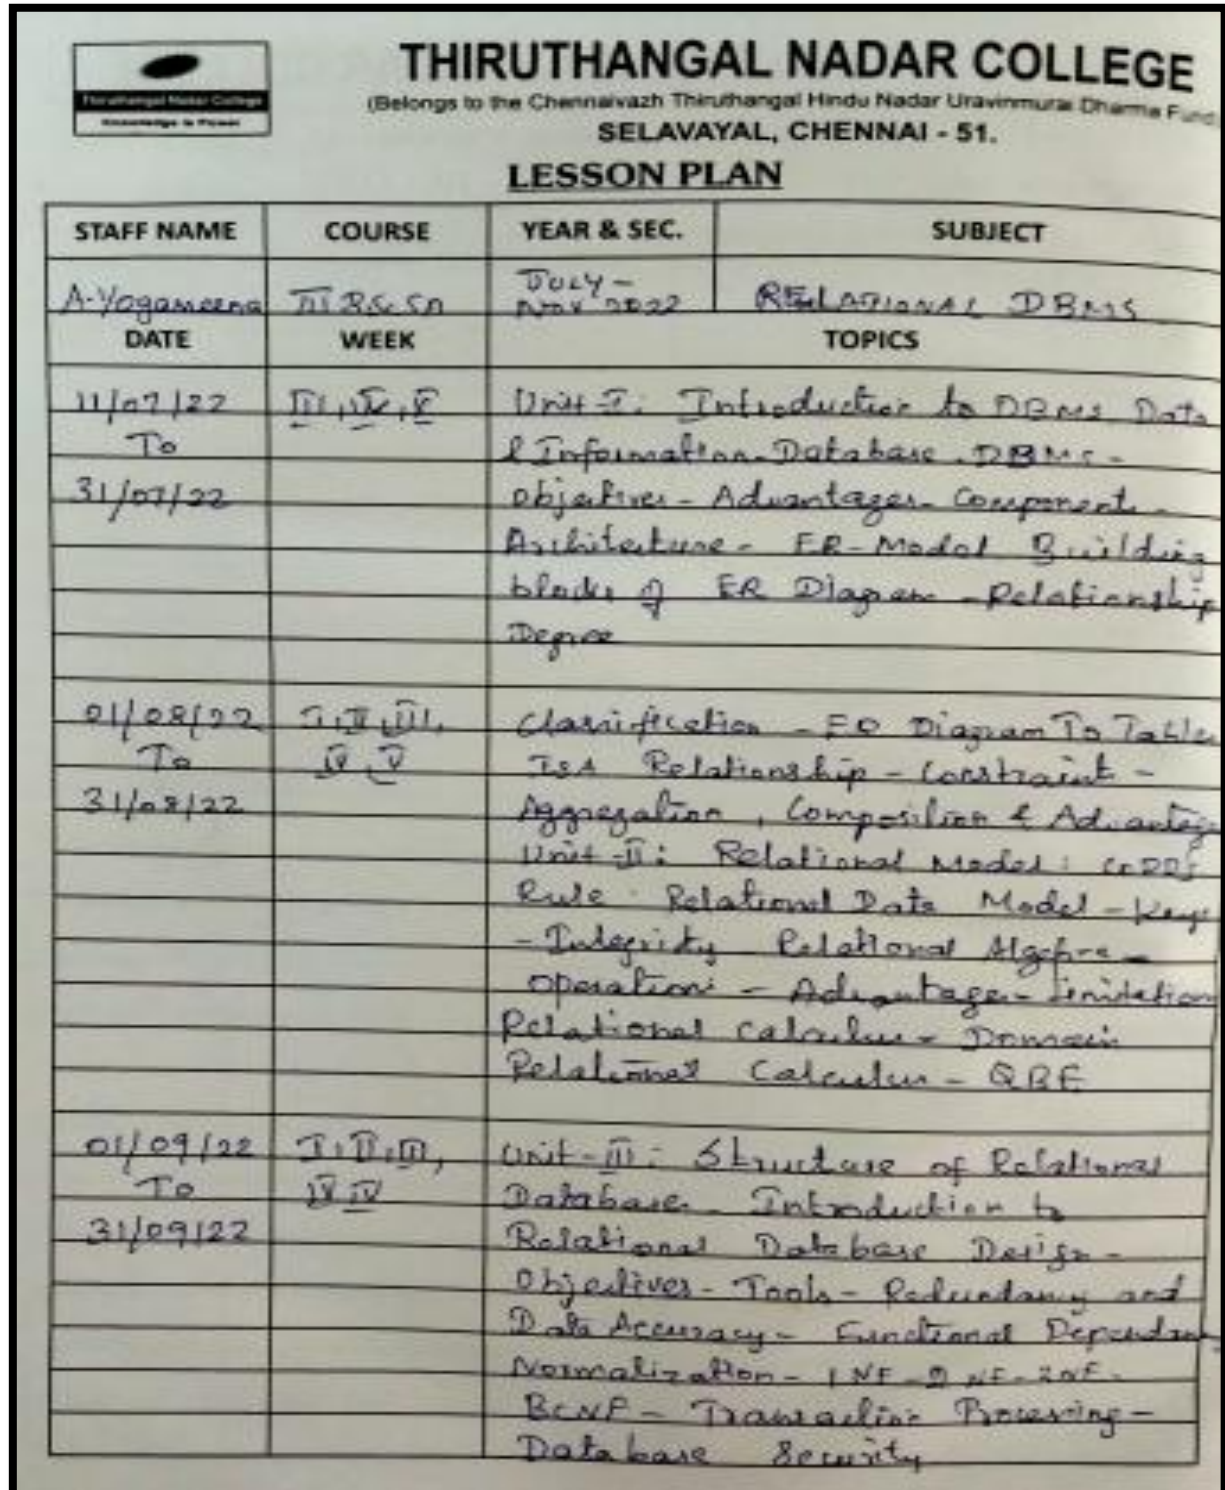 THIRUTHANGAL NADAR COLLEGE
Thiruthangal Nadar College
Knowledge is Power
(Belongs to the Chennaivazh Thiruthangal Hindu Nadar Uravinmurai Dharma Fund
SELAVAYAL, CHENNAI - 51.
LESSON PLAN
STAFF NAME COURSE YEAR & SEC. SUBJECT
A. Yogameena III BSc SA JULY - NOV 2022 RELATIONAL DBMS
DATE WEEK TOPICS
11/07/22 III, IV, V Unit-I: Introduction to DBMS Data
To & Information-Database. DBMS -
31/07/22 Objectives - Advantages - Component -
Architecture - ER-Model Building
blocks of ER Diagram - Relationship
Degree
01/08/22 I, II, III, Classification - ER Diagram To Table
To IV, V ISA Relationship - Constraint -
31/08/22 Aggregation, Composition & Advantage
Unit-II: Relational Model: CODD's
Rule Relational Data Model - Keys
- Integrity Relational Algebra -
Operations - Advantage - Limitation
Relational calculus - Domain
Relational Calculus - QBE
01/09/22 I, II, III, Unit-III: Structure of Relational
To IV Database - Introduction to
31/09/22 Relational Database Design -
Objectives - Tools - Redundancy and
Data Accuracy - Functional
Normalization - 1NF - 2NF - 3NF -
BCNF - Transaction Processing -
Database Security